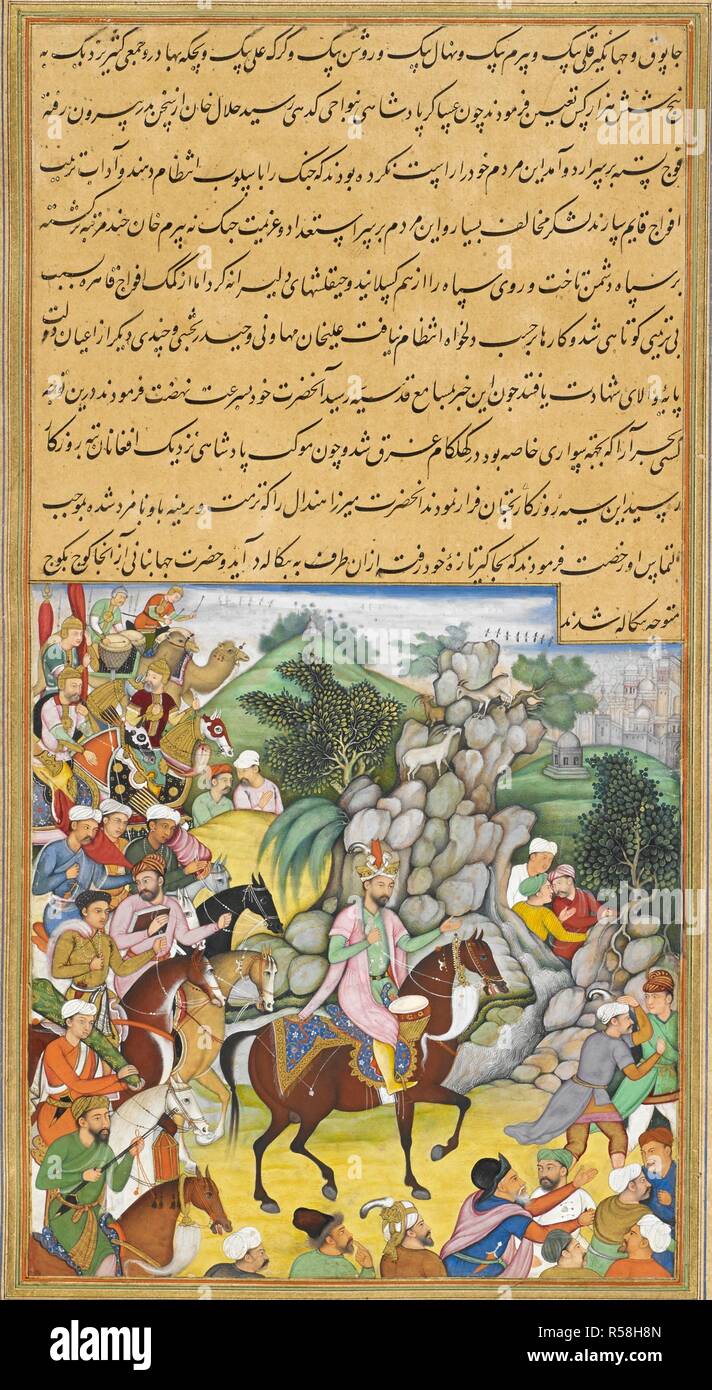 جابوق و جهانگیر قلی بیک و بیرم بیک و نهال بیک و روشن بیک و کرک علی بیک و بچکه بهادر و جمعی کثیر نزدیک به
پنج شش هزار کس تعیین فرمودند چون عساکر پادشاهی بنواحی کدهی رسید جلال خان از پیش پدر بیرون رفته
فوج بسته بر سپر اردو آمد این مردم خود را راست نکرده بودند که جنک را با سلوب انتظام دهند و آداب ترتیب
افواج قایم سازند لشکر مخالف بسیار و این مردم بی استعداد و عزیمت جنک نه بیرم خان چند مرتبه برکشته
بر سپاه دشمن تاخت و روی سپاه را از هم کسلانید و چپقلشهای دلیرانه کرد اما از کمک افواج قاهره بسبب
بی ترتیبی کوتاهی شد و کارها حسب دلخواه انتظام نیافت علیخان مهاونی و حیدر بخشی و چندی دیکر از اعیان دولت
پایه والای شهادت یافتند چون این خبر بمسامع قدسیه رسید آنحضرت خود بسرعت نهضت فرمودند درین
کشتی را که بجهة سواری خاصه بود در کهلکام غرق شد و چون موکب پادشاهی نزدیک افغانان تیره روزکار
رسید این سیه روزکار بجنان فرار نمودند آنحضرت میرزا هندال را که ترهت و برینه باو نامزد شده بموجب
التماس او رخصت فرمودند که بجاکیر تازه خود رفته ازان طرف به بنکاله در آید و حضرت جهانبانی از آنجا کوچ بکوچ
متوجه بنکاله شدند
alamy
alamy
Image ID: R58H8N
www.alamy.com